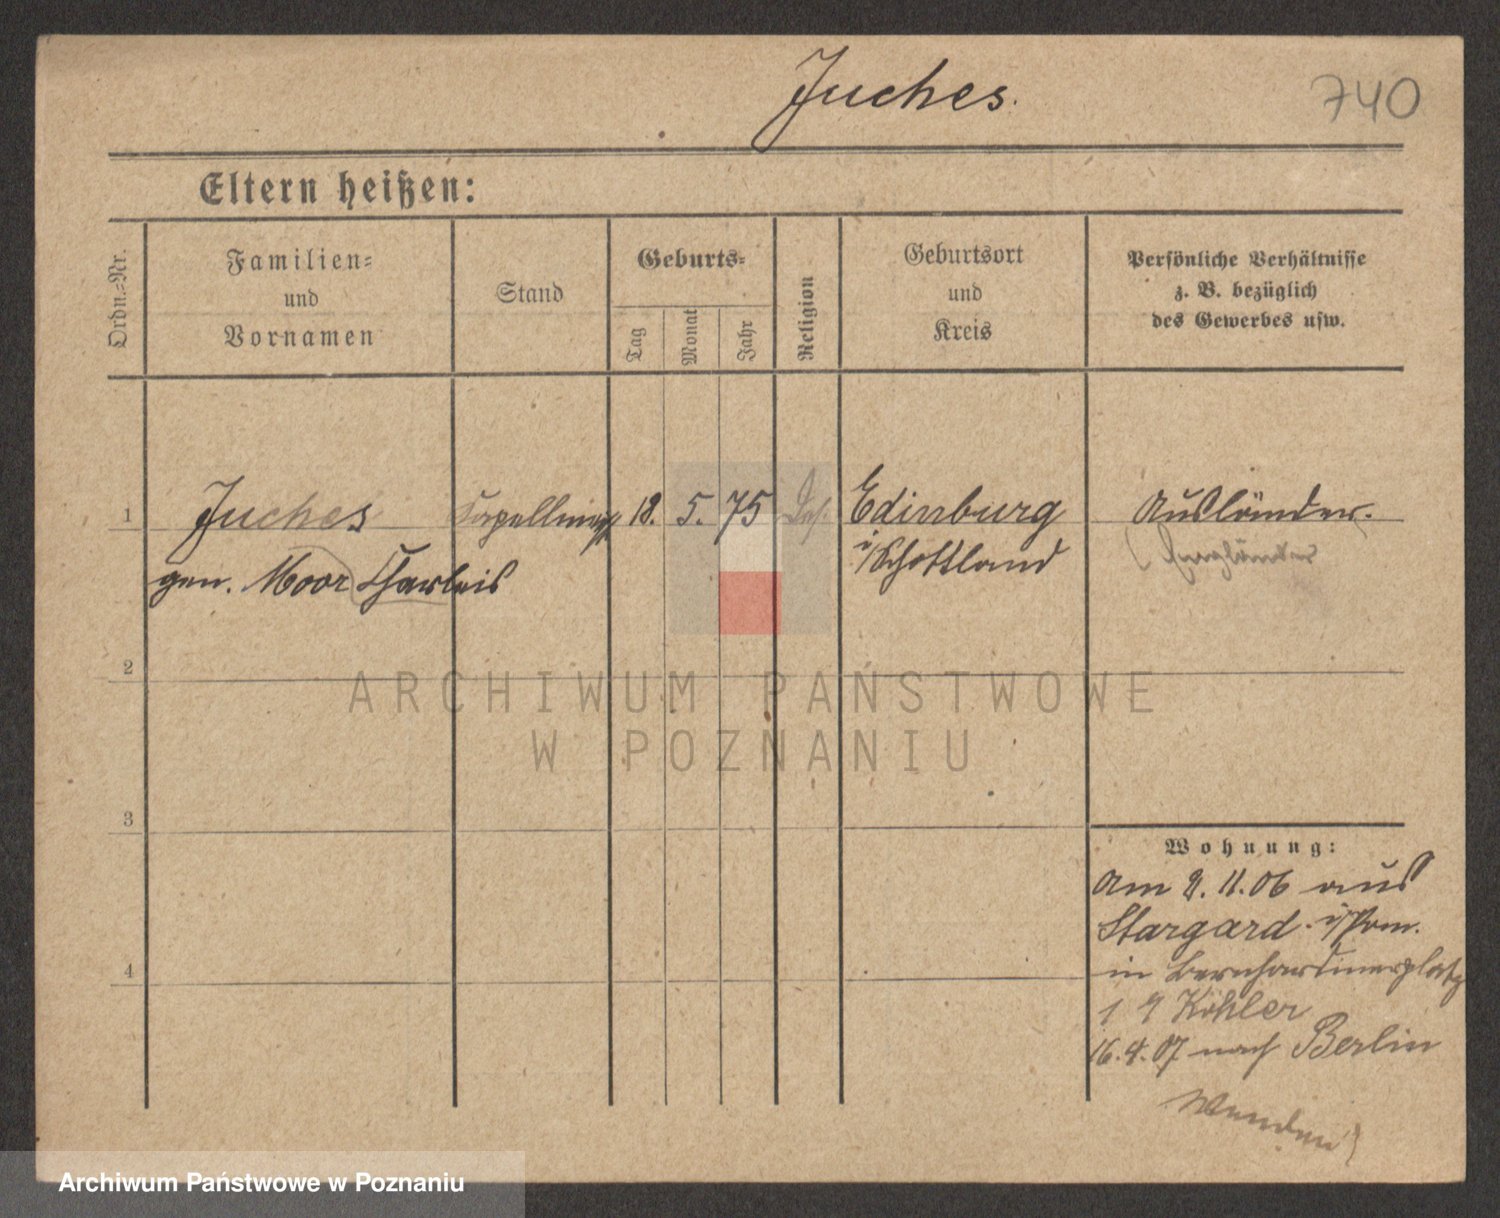 Juches.
740
Eltern heißen:
Ordn.-Nr.
Familien-
und
Vornamen
Stand
Geburts-
Tag
Monat
Jahr
Religion
Geburtsort
und
Kreis
Persönliche Verhältnisse
z. B. bezüglich
des Gewerbes usw.
1
Juches
gen. Moor Charleis
18. 5. 75
Edinburg
i/Schottland
Ausländer.
(Engländer
2
ARCHIWUM PAŃSTWOWE
W POZNANIU
3
Wohnung:
Am 2. 11. 06 aus
Stargard i/Pom.
in Bernhardinerplatz
1 Köhler
16. 4. 07 nach Berlin
Wenden!
4
Archiwum Państwowe w Poznaniu